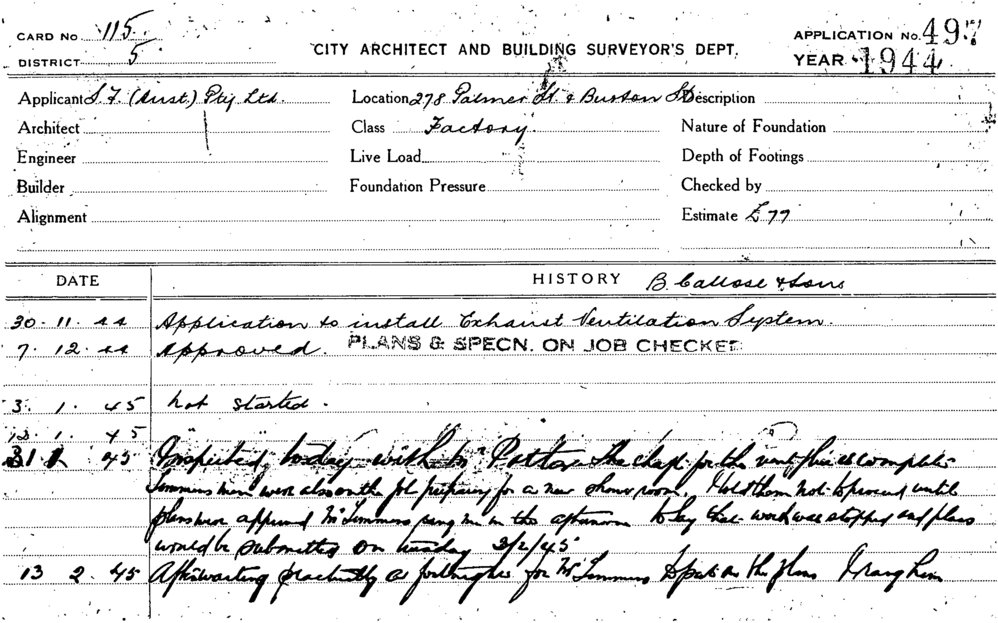 CARD No 115.
APPLICATION No. 497
DISTRICT 5
CITY ARCHITECT AND BUILDING SURVEYOR'S DEPT.
YEAR 1944
Applicant S.F. (Aust.) Pty Ltd. Location 278 Palmer St. & Burton St Description
Architect Class Factory. Nature of Foundation
Engineer Live Load Depth of Footings
Builder Foundation Pressure Checked by
Alignment Estimate £77
DATE HISTORY B. Callose & Sons
30. 11. 44 Application to install Exhaust Ventilation System.
7. 12. 44 Approved. PLANS & SPECN. ON JOB CHECKED
3. 1. 45 not started.
12. 1. 45 "
31 1 45 Inspected today with Mr The for the vent flue is complete
Simmens men were also on the job preparing for a new show room. I told them not to proceed until
plans were approved Mr Simmens rang me in the afternoon to say that work was stopped and plans
would be submitted on tuesday 3/2/45
13 2. 45 After waiting practically a fortnight for Mr Simmens to the plans I rang him